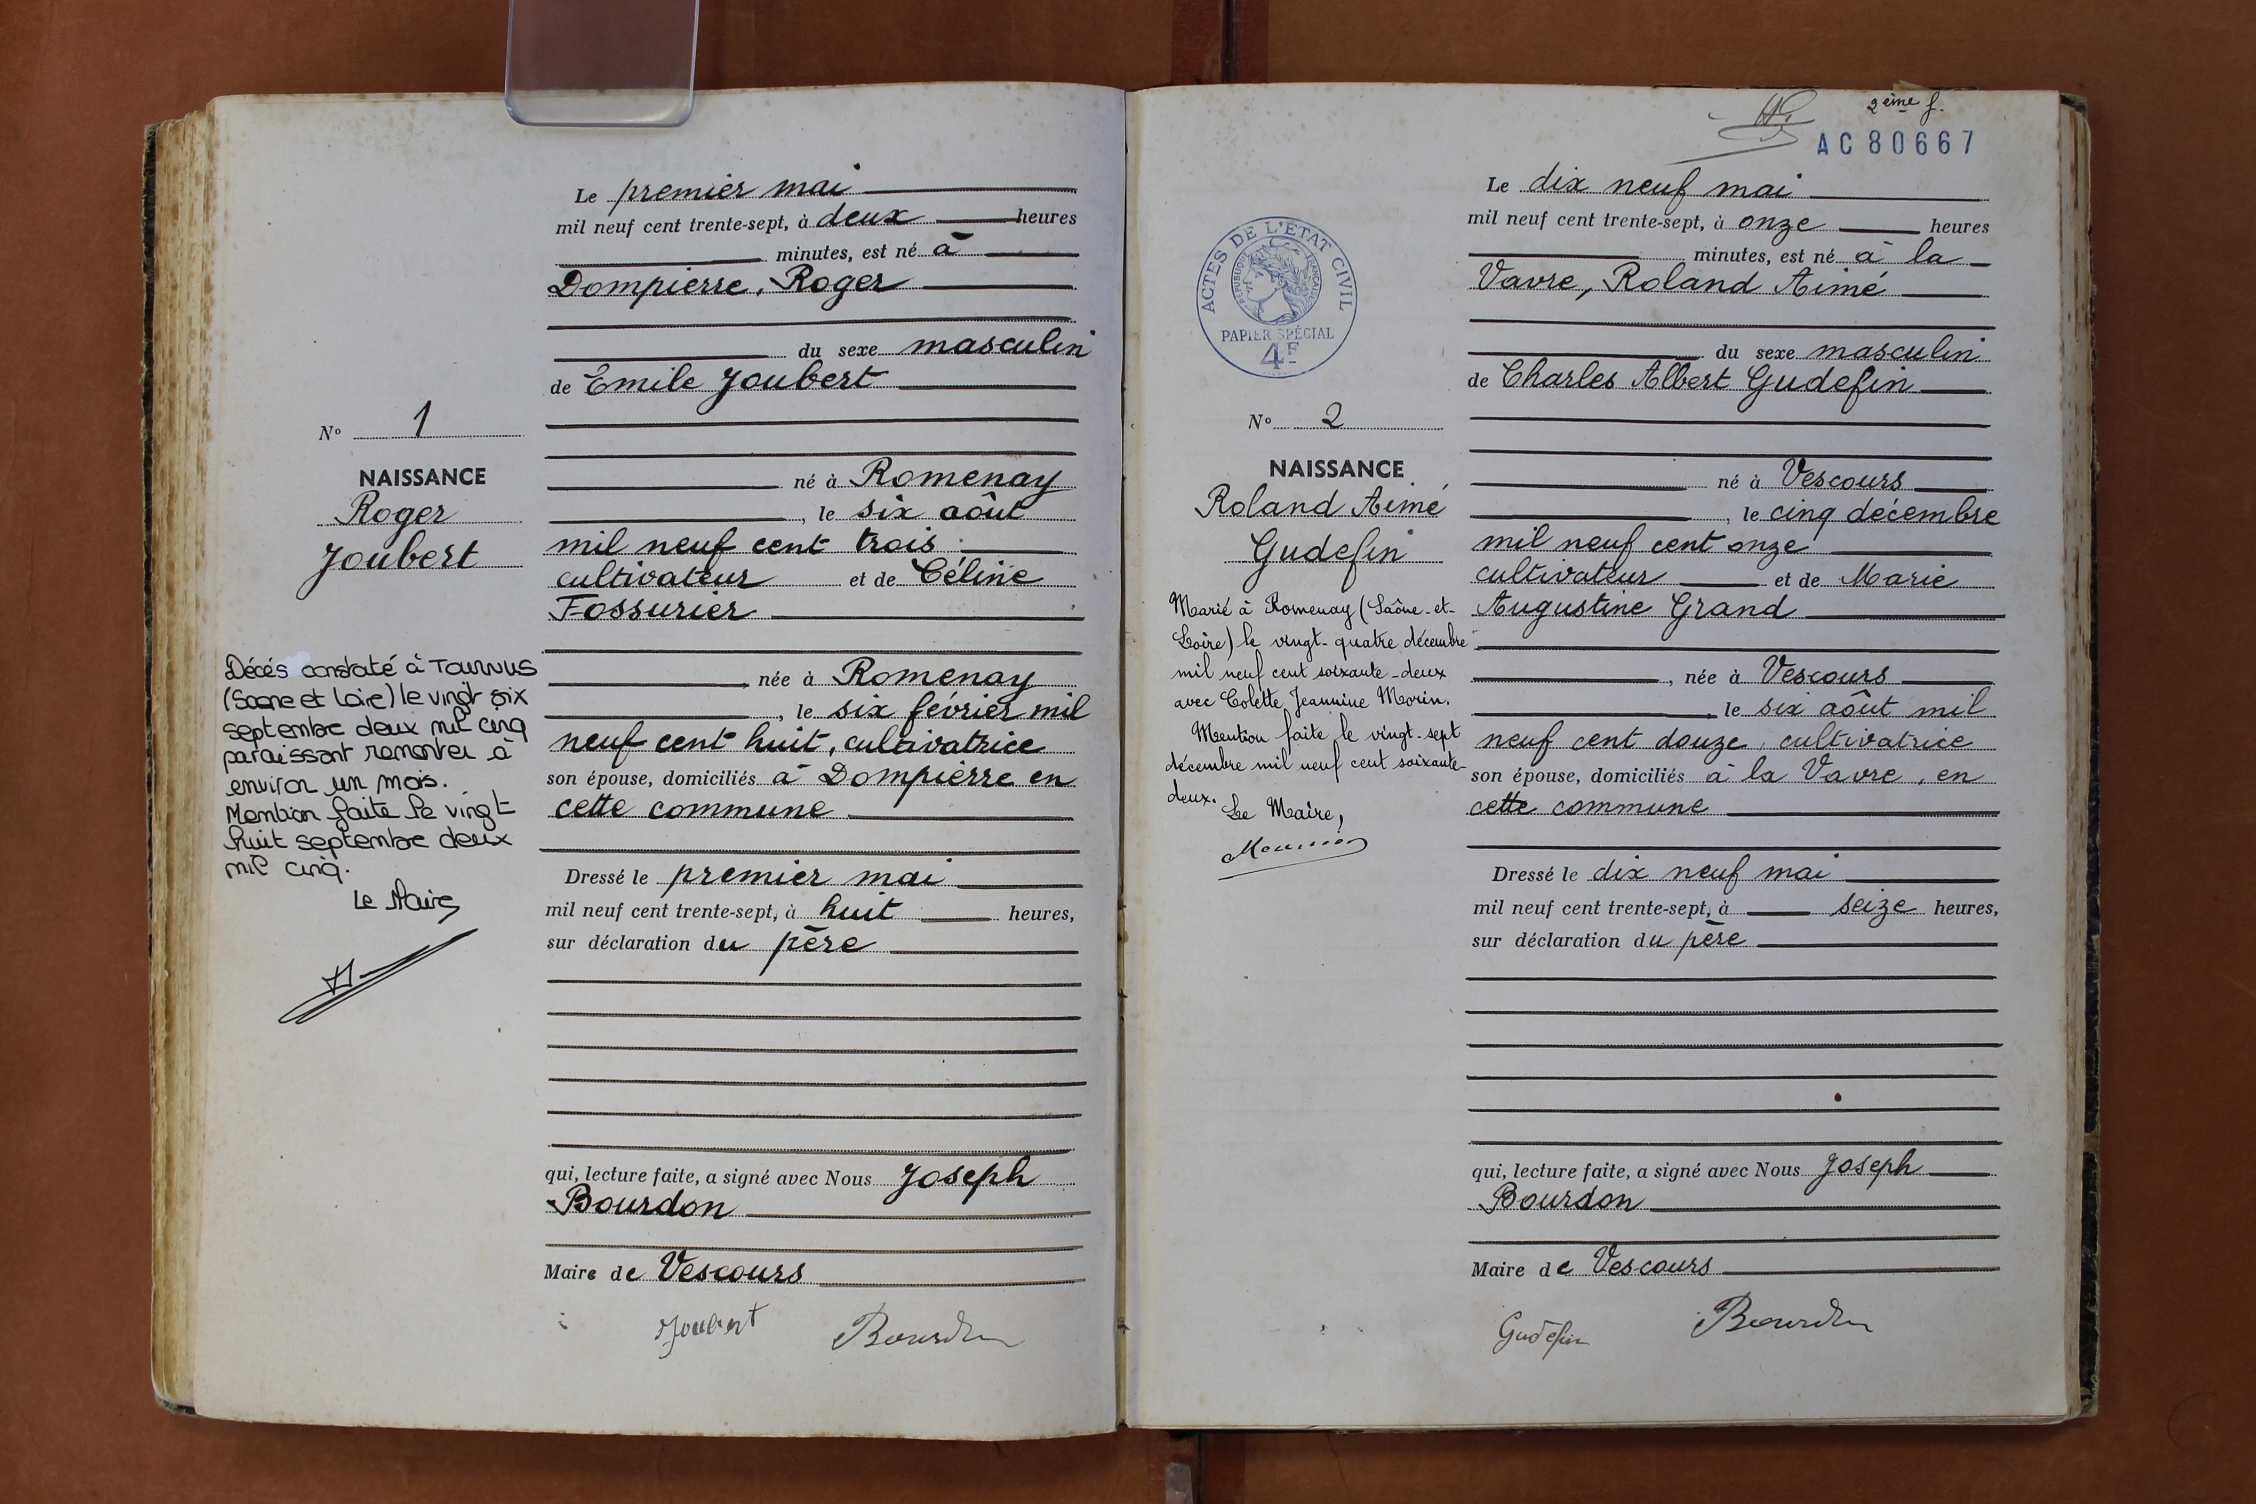 Le premier mai
mil neuf cent trente-sept, à deux heures
minutes, est né à
Dompierre, Roger
du sexe masculin
de Emile Joubert
né à Romenay
, le six août
mil neuf cent trois
cultivateur et de Céline
Fossurier
née à Romenay
, le six février mil
neuf cent huit, cultivatrice
son épouse, domiciliés à Dompierre en
cette commune
Dressé le premier mai
mil neuf cent trente-sept, à huit heures,
sur déclaration du père
qui, lecture faite, a signé avec Nous Joseph
Bourdon
Maire de Vescours
Joubert Bourdon
N° 1
NAISSANCE
Roger
Joubert
Décés constaté à TOURNUS
(Saone et Loire) le vingt six
septembre deux mil cinq
paraissant remonter à
environ un mois.
Mention faite le vingt
huit septembre deux
mil cinq.
Le Maire
2ème f.
AC 80667
Le dix neuf mai
mil neuf cent trente-sept, à onze heures
minutes, est né à la
Vavre, Roland Aimé
du sexe masculin
de Charles Albert Gudefin
né à Vescours
, le cinq décembre
mil neuf cent onze
cultivateur et de Marie
Augustine Grand
, née à Vescours
, le six août mil
neuf cent douze, cultivatrice
son épouse, domiciliés à la Vavre, en
cette commune
Dressé le dix neuf mai
mil neuf cent trente-sept, à seize heures,
sur déclaration du père
qui, lecture faite, a signé avec Nous Joseph
Bourdon
Maire de Vescours
Gudefin Bourdon
ACTES DE L'ETAT CIVIL
REPUBLIQUE FRANÇAISE
PAPIER SPÉCIAL
4F
N° 2
NAISSANCE
Roland Aimé
Gudefin
Marié à Romenay (Saône-et-
Loire) le vingt-quatre décembre
mil neuf cent soixante-deux
avec Colette Jeannine Morin.
Mention faite le vingt-sept
décembre mil neuf cent soixante-
deux.
Le Maire,